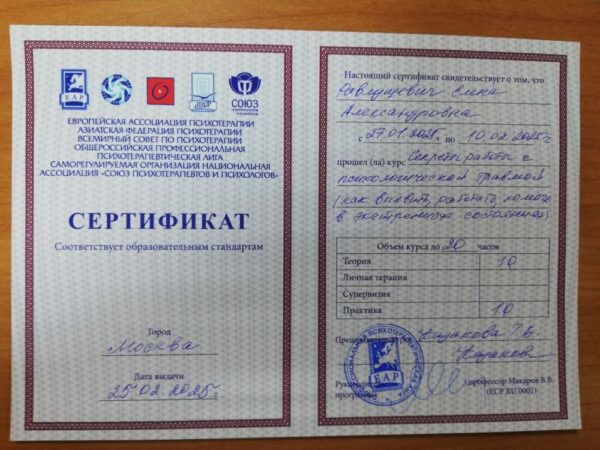 EAP
ППЛ
СОЮЗ
ЕВРОПЕЙСКАЯ АССОЦИАЦИЯ ПСИХОТЕРАПИИ
АЗИАТСКАЯ ФЕДЕРАЦИЯ ПСИХОТЕРАПИИ
ВСЕМИРНЫЙ СОВЕТ ПО ПСИХОТЕРАПИИ
ОБЩЕРОССИЙСКАЯ ПРОФЕССИОНАЛЬНАЯ
ПСИХОТЕРАПЕВТИЧЕСКАЯ ЛИГА
САМОРЕГУЛИРУЕМАЯ ОРГАНИЗАЦИЯ НАЦИОНАЛЬНАЯ
АССОЦИАЦИЯ «СОЮЗ ПСИХОТЕРАПЕВТОВ И ПСИХОЛОГОВ»
СЕРТИФИКАТ
Соответствует образовательным стандартам
Город
Москва
Дата выдачи
25 02 2025г.
Настоящий сертификат свидетельствует о том, что
Елена
Александровна
с 27.01.2025 по 10.02.2025г.
прошел (ла) курс Секреты работы с
психологической травмой
(как выявить, работать, помочь
в экстренных состояниях)
Объем курса до 20 часов
Теория 10
Личная терапия
Супервизия
Практика 10
Казакова Т.В.
EAP
профессор Макаров В.В.
программы (ECP RU 0001)